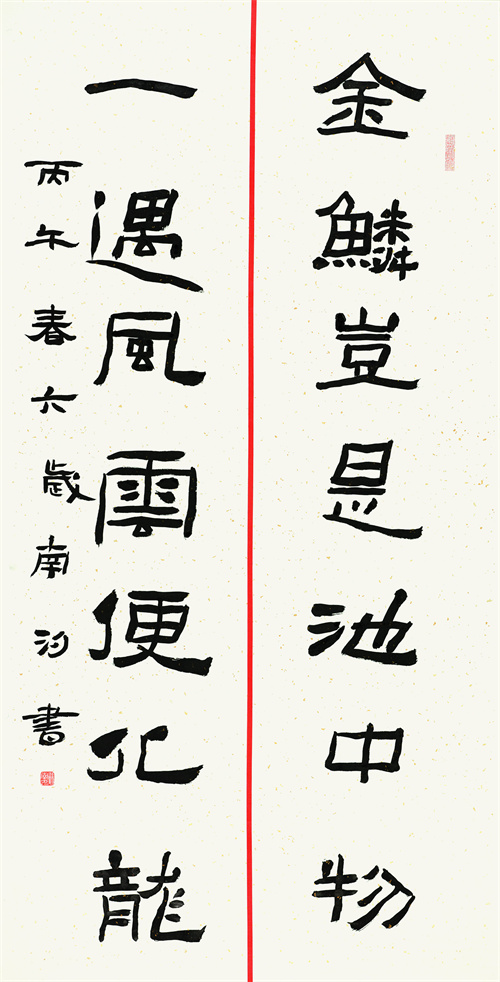 金鱗豈是池中物
一遇風雲便化龍
丙午春六歲南汐書